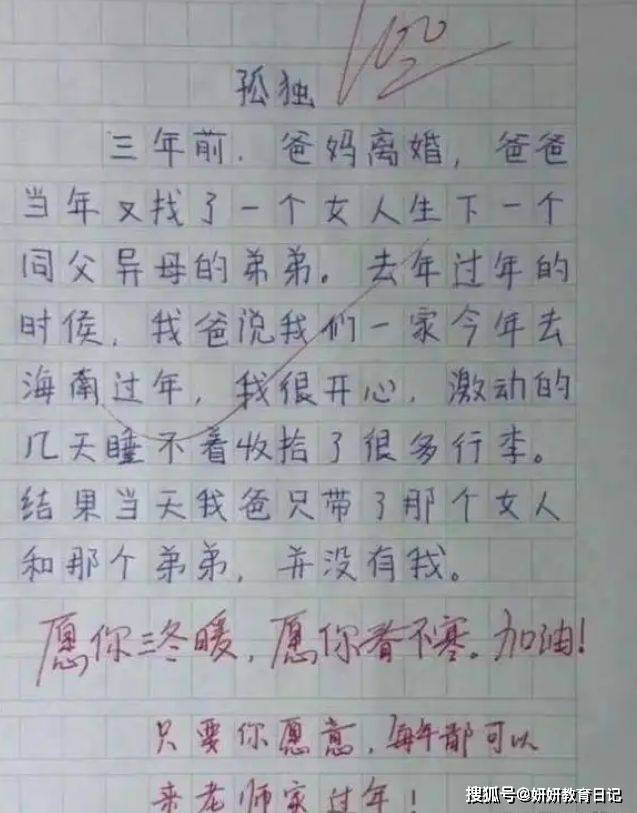 100
孤独
三年前．爸妈离婚，爸爸
当年又找了一个女人生下一个
同父异母的弟弟。去年过年的
时侯，我爸说我们一家今年去
海南过年，我很开心，激动的
几天睡不着收拾了很多行李。
结果当天我爸只带了那个女人
和那个弟弟，并没有我。
愿你三冬暖，愿你春不寒。加油！
只要你愿意，每年都可以
来老师家过年！
搜狐号@妍妍教育日记